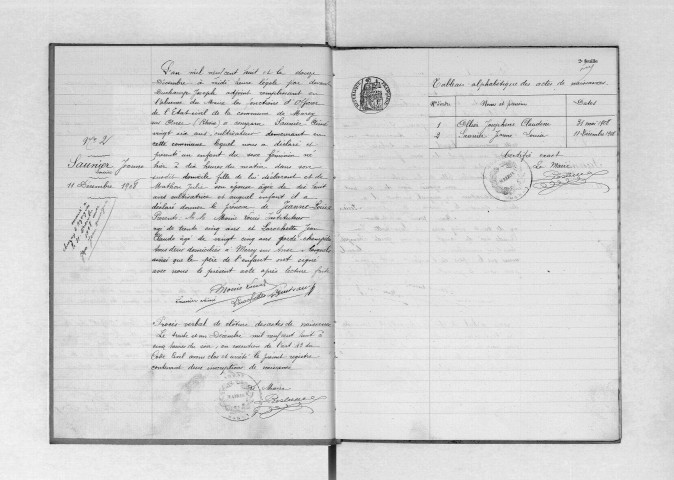 N° 2
Saunier Jeanne
Louise
11 Décembre 1908
L'an mil neuf cent huit et le douze
Décembre à midi heure légale par devant
Joseph adjoint remplissant en
l'absence du Maire les fonctions d'officier
de l'Etat civil de la commune de Marcy
sur Anse (Rhône) a comparu Saunier
vingt six ans cultivateur demeurant en
cette commune lequel nous a déclaré et
présenté un enfant du sexe féminin né
hier à dix heures du matin dans son
susdit domicile fille de lui déclarant et de
Mathon Julie son épouse âgée de dix huit
ans cultivatrice et auquel enfant il a
déclaré donner le prénom de Jeanne-Louise
Présents M. M. Monin Louis Instituteur
âgé de trente cinq ans et Larochette Jean
Claude âgé de vingt cinq ans garde champêtre
tous deux domiciliés à Marcy sur Anse - Lesquels
ainsi que le père de l'enfant ont signé
avec nous le présent acte après lecture faite
Monin Louis
Larochette
Procès verbal de clôture des actes de naissance
Le trente et un Décembre mil neuf cent huit à
cinq heures du soir, en exécution de l'art 43 du
Code Civil avons clos et arrêté le présent registre
contenant deux inscriptions de naissance
Le Maire
2e feuille
Tableau alphabétique des actes de naissances
Nos d'ordre Noms et prénoms Dates
1 Joséphine Claudine 1908
2 Saunier Jeanne Louise 11 Décembre 1908
Certifié exact
Le Maire